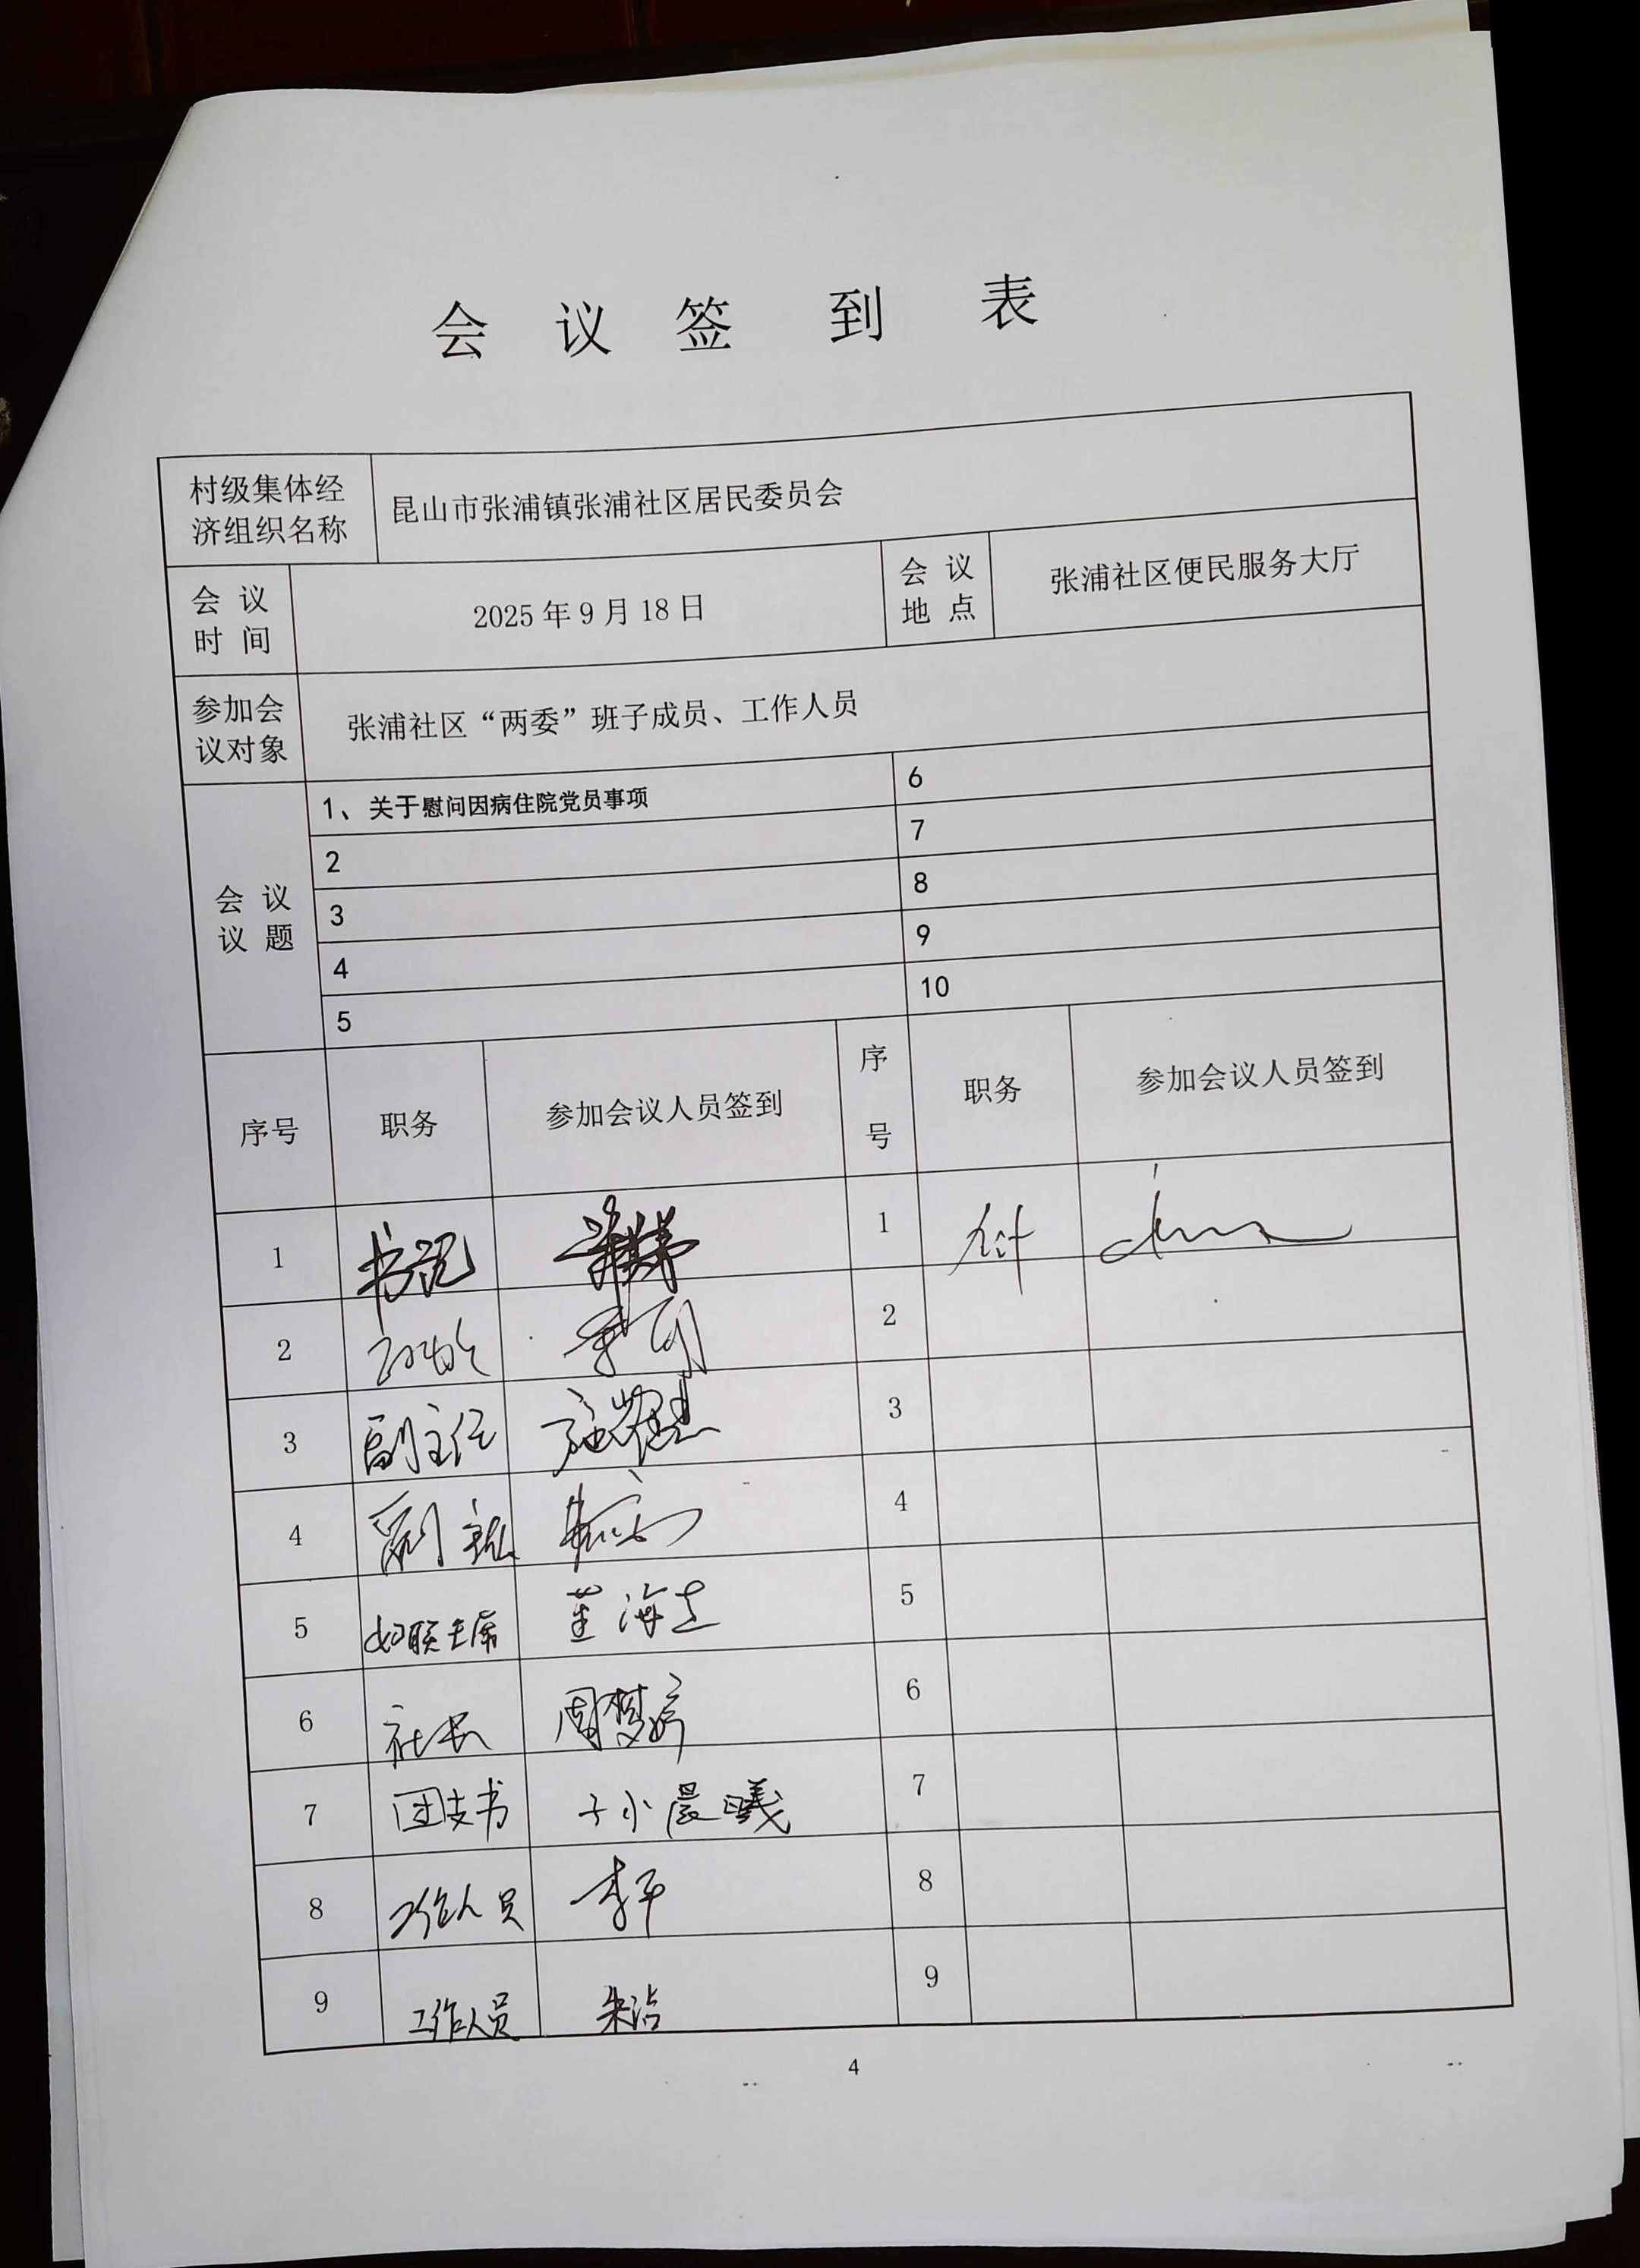 会议签到表
村级集体经济组织名称 昆山市张浦镇张浦社区居民委员会
会议时间 2025年9月18日 会议地点 张浦社区便民服务大厅
参加会议对象 张浦社区“两委”班子成员、工作人员
会议议题
1、关于慰问因病住院党员事项 6
2 7
3 8
4 9
5 10
序号 职务 参加会议人员签到 序号 职务 参加会议人员签到
1 书记 1
2 2
3 副主任 3
4 4
5 妇联主席 董海志 5
6 社长 周梦婷 6
7 团支书 小晨曦 7
8 工作人员 李平 8
9 工作人员 朱沾 9
4